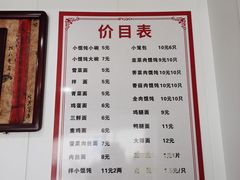 价目表
小馄饨小碗 5元
小馄饨大碗 7元
雪菜面 5元
拌面 5元
青菜面 5元
鸡蛋面 6元
三鲜面 6元
重鸡面 6元
雪菜肉丝面 7元
肉丝面 8元
拌小馄饨 11元2两
小笼包 10元6只
韭菜肉馄饨 9元10只
荠菜肉馄饨 10元10只
香菇肉馄饨 10元10只
全肉馄饨 10元10只
鸡腿面 9元
鸭腿面 11元
大排面 12元